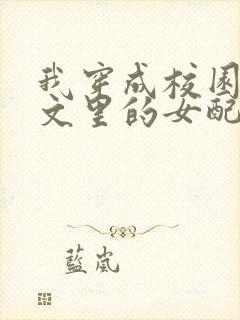 我穿成校园
文里的女配
藍嵐